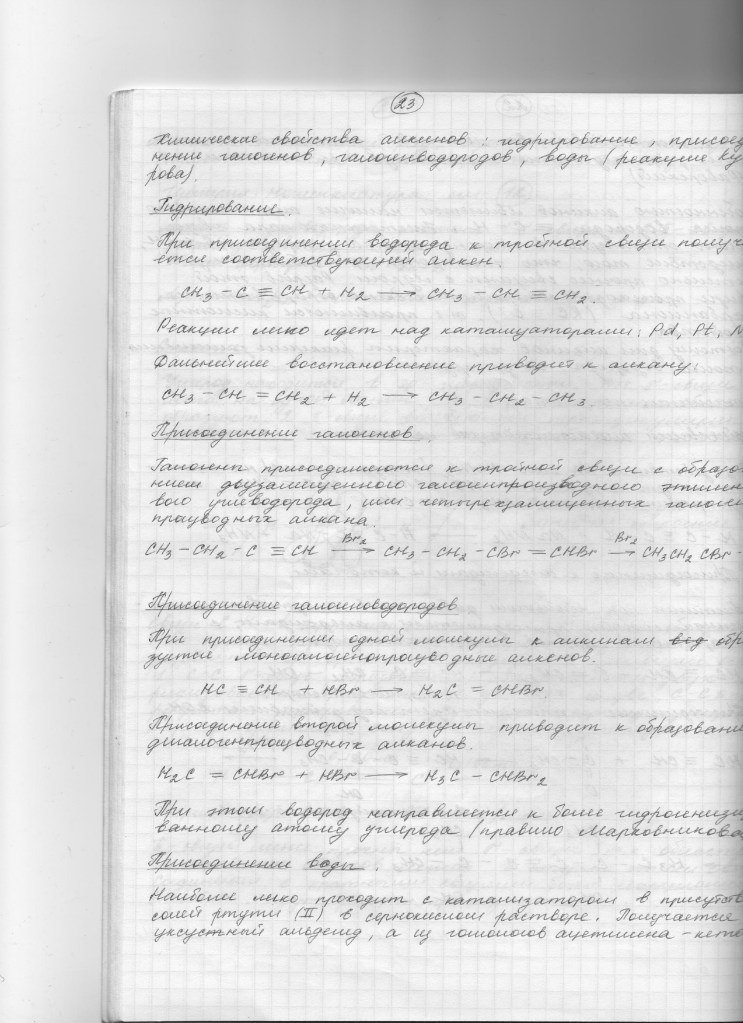 23
Химические свойства алкенов: гидрирование, присоед
нение галогенов, галогенводородов, воды (реакция Ку
рова).
Гидрирование.
При присоединении водорода к тройной связи получ
ется соответствующий алкен.
CH3 – C ≡ CH + H2 → CH3 – CH ≡ CH2.
Реакция легко идет над катализаторами: Pd, Pt, N
Дальнейшее восстановление приводит к алкану:
CH3 – CH = CH2 + H2 → CH3 – CH2 – CH3.
Присоединение галогенов.
Галогены присоединяются к тройной связи с образо
нием двузамещенного галогенпроизводного этилен
вого углеводорода, или четырехзамещенных галоген
производных алкана.
CH3 – CH2 – C ≡ CH →Br2 CH3 – CH2 – CBr = CHBr →Br2 CH3CH2 CBr –
Присоединение галогеноводородов
При присоединении одной молекулы к алкинам вод обр
зуется моногалогенопроизводные алкенов.
HC ≡ CH + HBr → H2C = CHBr
Присоединение второй молекулы приводит к образовани
дигалогенпроизводных алканов.
H2C = CHBr + HBr → H3C – CHBr2
При этом водород направляется к более гидрогенизи
ванному атому углерода (правило Марковникова
Присоединение воды.
Наиболее легко проходит с катализатором в присутств
солей ртути (II) в сернокислом растворе. Получается
уксустный альдегид, а из гомологов ацетилена – кето